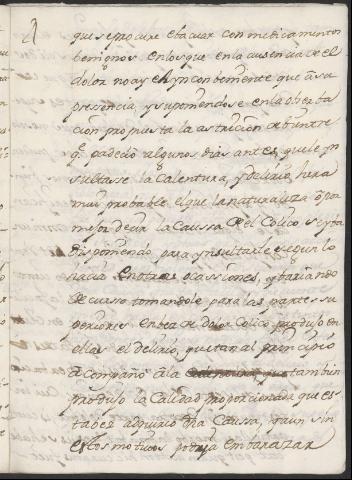 que se procure ebacuar con medicamentos
benignos en los que en la ausencia de el
dolor no ay el ynconbeniente que a su
presencia y suponiendose en la obserba
cion propuesta la astriccion de bientre
q.e padecio algunos dias antes, que le yn
sultasse la calentura, y delirio, hera
mas probable el que la naturaleza o por
mejor decir la caussa del colico se yba
disponiendo para ynsultarle segun lo
hacia en otras ocassiones, y bariando
de curso tomandole para las partes su
periores en bez de dolor colico produjo en
ellas el delirio, que tan al principio
acompaño a la tambien
produjo la calidad proporcionada que es
ta bez adquirio dha caussa, y aun sin
estos motivos podria embarazar